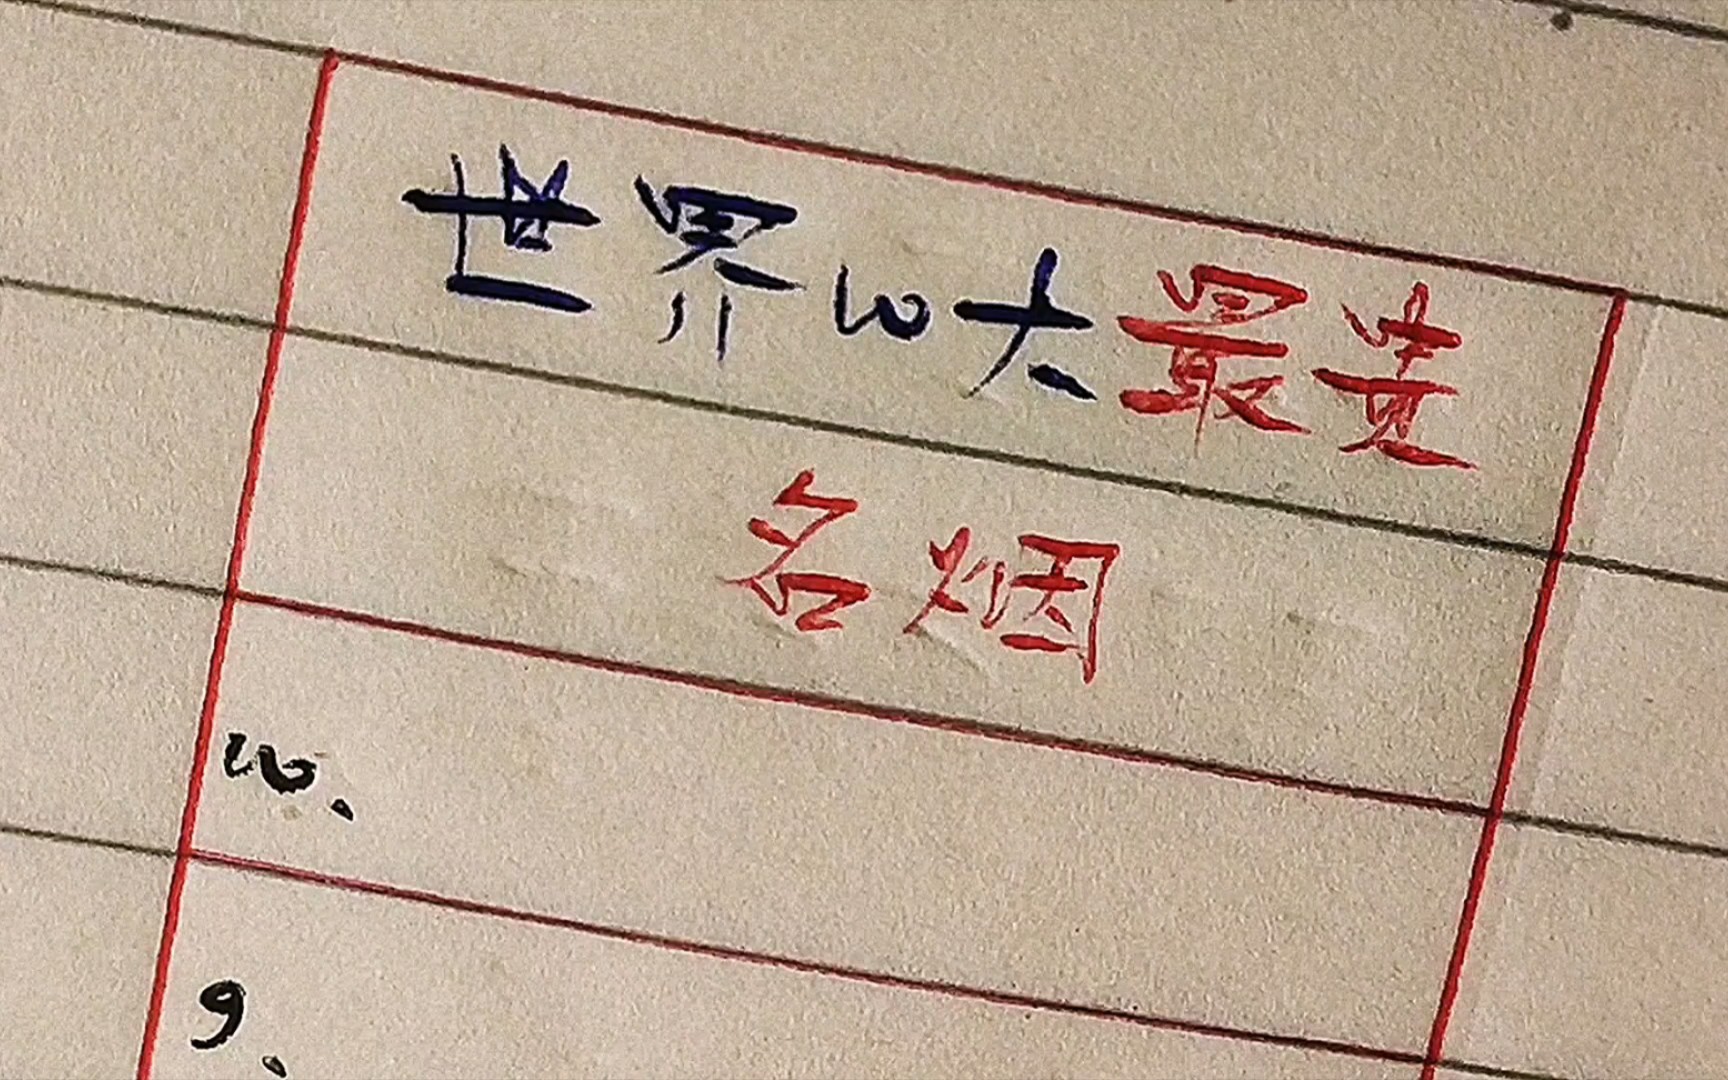 世界10大最贵
名烟
10.
9.